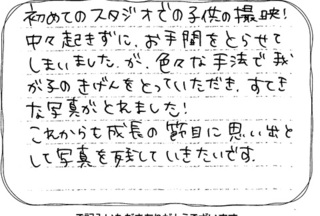 初めてのスタジオでの子供の撮映!
中々起きずに、お手間をとらせて
しまいましたが、色々な手法で我
が子のきげんをとっていただき、すてき
な写真がとれました!
これからも成長の節目に思い出と
して写真を残していきたいです。